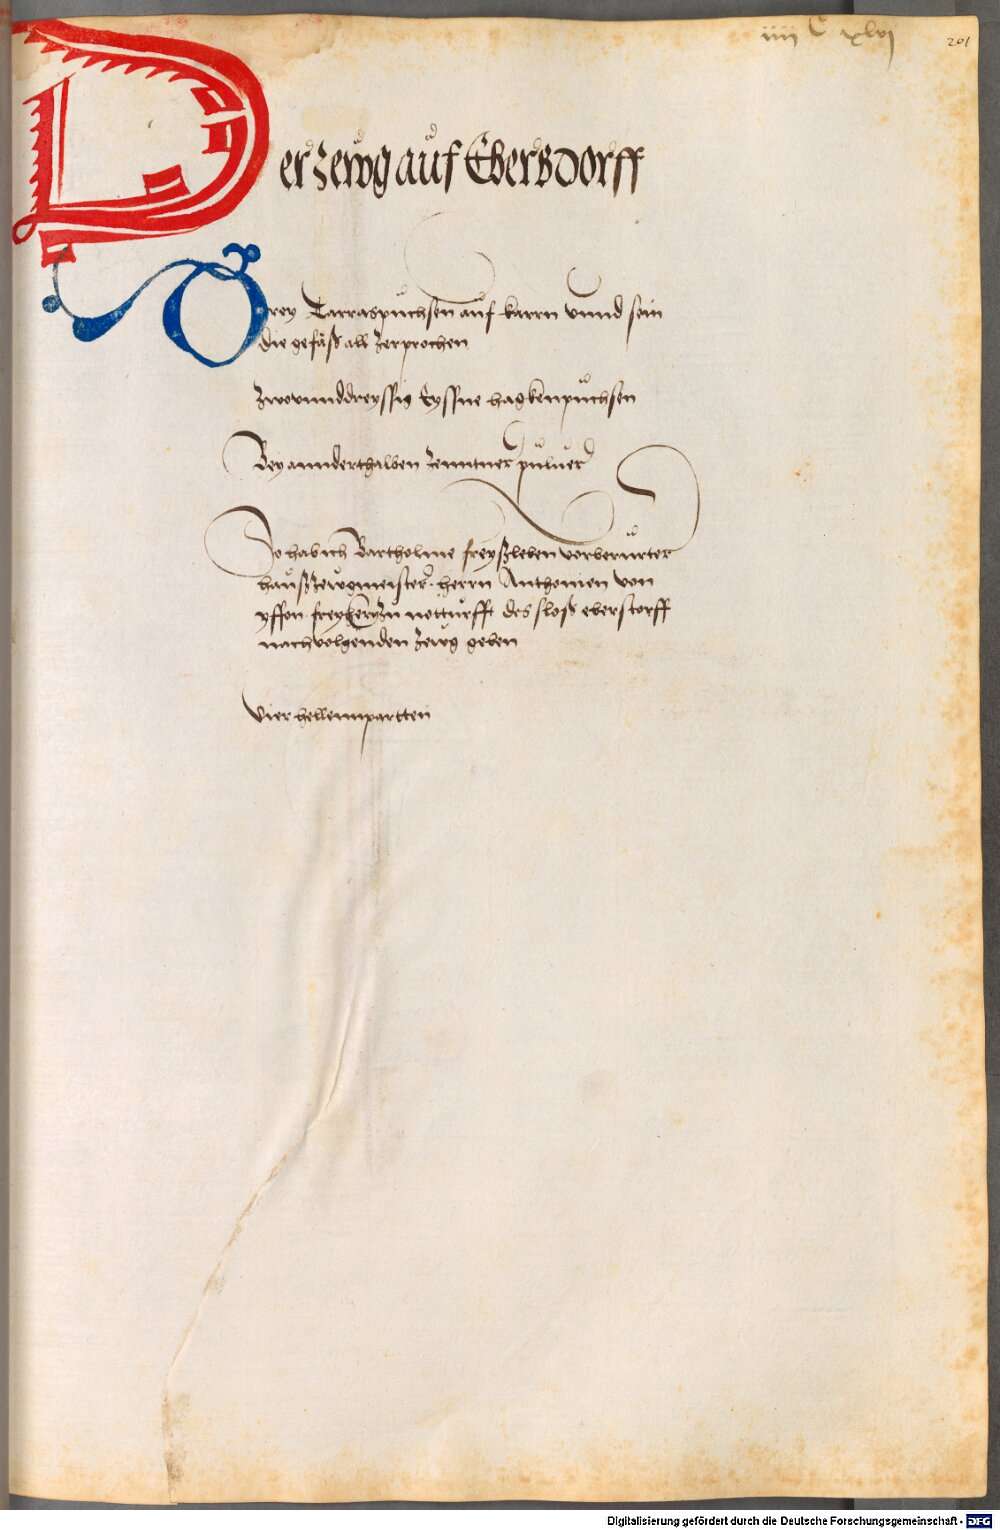 iiii C xlvj
201
Der zewg auf Eberßdorff
Drey Tarraspuchsen auf karrn vnnd sein
die gefäß all zerprochen
Zwovnnddreyssig Eyssne hagkenpuchsen
Bey annderthalben Zenntner puluer
So hab ich Bartholme freyßleben vorberurter
haußzewgmeister herrn Anthonien von
yffon freyherrn zu notturfft des sloß eberstorff
nachvolgenden zewg geben
Vier hellennpartten
Digitalisierung gefördert durch die Deutsche Forschungsgemeinschaft - DFG